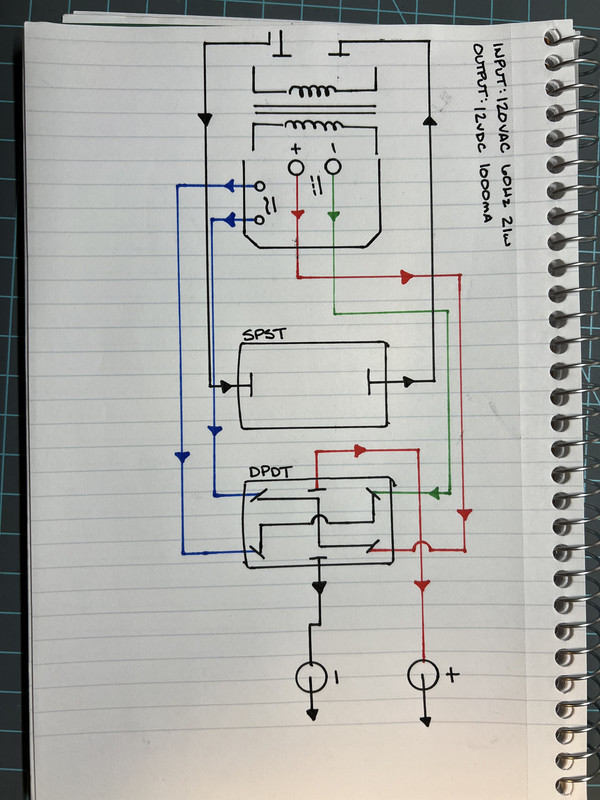 INPUT: 120VAC 60Hz 21W
OUTPUT: 12VDC 1000mA
+ -
SPST
DPDT
- +